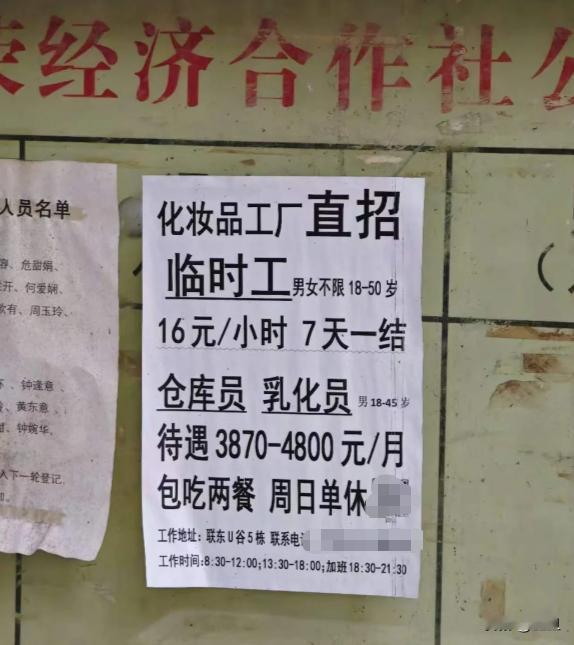 经济合作社
人员名单
容、危甜娟、
开、何爱娴、
有、周玉玲、
、钟逢意、
、黄东意、
、钟婉华、
人下一轮登记
化妆品工厂直招
临时工男女不限18-50岁
16元/小时 7天一结
仓库员 乳化员 男18-45岁
待遇3870-4800元/月
包吃两餐 周日单休
工作地址: 联东U谷5栋 联系电
工作时间:8:30-12:00;13:30-18:00;加班18:30-21:30